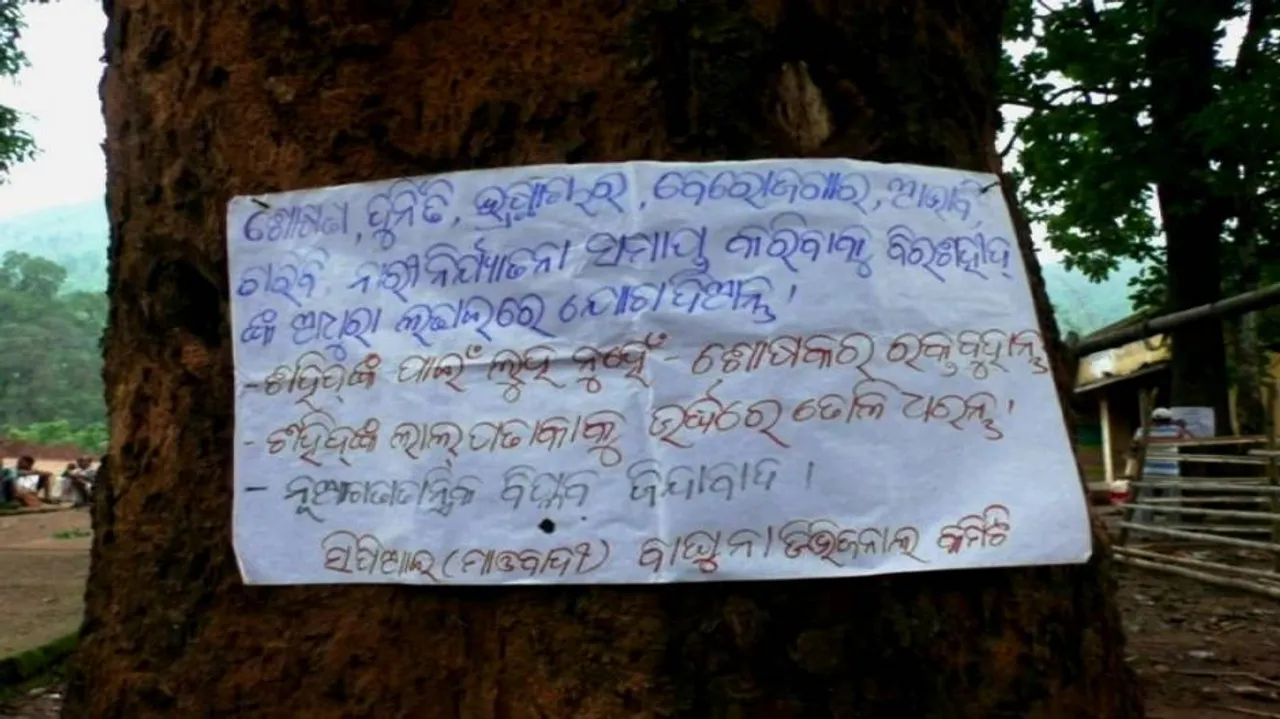 ଶୋଷଣ, ଦୁର୍ନିତି, ଭ୍ରଷ୍ଟାଚାର, ବେରୋଜଗାର, ଅଭାବ,
ଗରିବି, ନାରୀ ନିର୍ଯ୍ୟାତନା ସମାପ୍ତ କରିବାକୁ ବିରଶହୀଦ୍
ଙ୍କ ଅଧୁରା ଲଢାଇରେ ଯୋଗ ଦିଅନ୍ତୁ!
- ଶହିଦ୍‌ଙ୍କ ପାଇଁ ଲୁହ ନୁହେଁ - ଶୋଷକର ରକ୍ତ ବୁହାନ୍ତୁ
- ଶହିଦ୍‌ଙ୍କ ଲାଲ୍ ପତାକାକୁ ଉର୍ଦ୍ଧରେ ତୋଳି ଧରନ୍ତୁ!
- ନୂଆଗଣତାନ୍ତ୍ରିକ ବିପ୍ଳବ ଜିନ୍ଦାବାଦ ।
ସିପିଆଇ (ମାଓବାଦୀ) ଡିଭିଜନାଲ କମିଟି